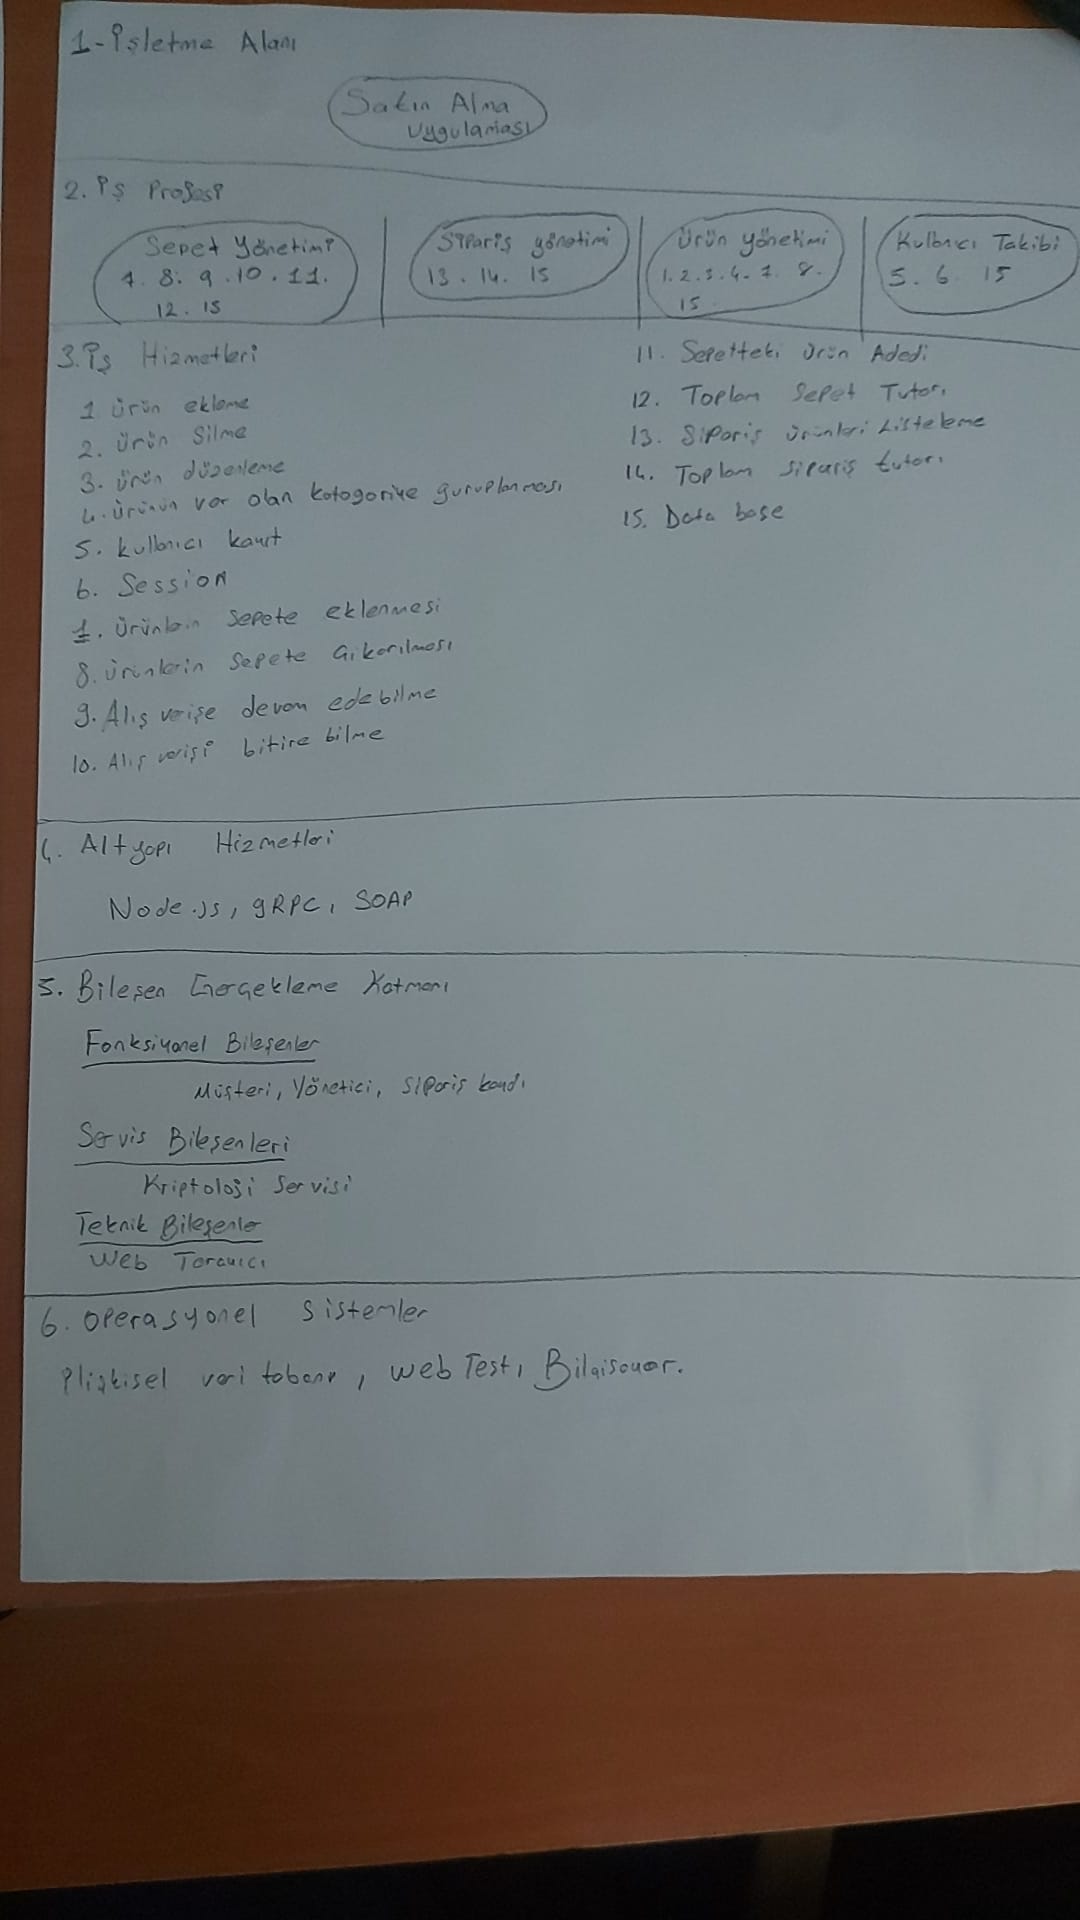 1-İşletme Alanı
Satın Alma
Uygulaması
2. İş Projesi
Sepet Yönetimi
7. 8. 9. 10. 11.
12. 15
Sipariş yönetimi
13. 14. 15
Ürün yönetimi
1. 2. 3. 4. 7. 8.
15.
Kullanıcı Takibi
5. 6. 15
3. İş Hizmetleri
1 ürün ekleme
2. ürün Silme
3. ürün düzenleme
4. ürünün var olan kotogoriye guruplanması
5. kullanıcı kayıt
6. Session
7. ürünlerin sepete eklenmesi
8. ürünlerin sepete çıkarılması
9. Alış verişe devam edebilme
10. Alış verişi bitire bilme
11. Sepetteki ürün Adedi
12. Toplam Sepet Tutarı
13. Sipariş ürünleri Listeleme
14. Toplam sipariş tutarı
15. Data base
4. Altyapı Hizmetleri
Node.js, gRPC, SOAP
5. Bileşen Gerçekleme Katmanı
Fonksiyonel Bileşenler
Müşteri, Yönetici, Sipariş kaydı
Servis Bileşenleri
Kriptoloji Servisi
Teknik Bileşenler
Web Tarayıcı
6. Operasyonel Sistemler
İlişkisel veri tabanı, web Test, Bilgisayar.